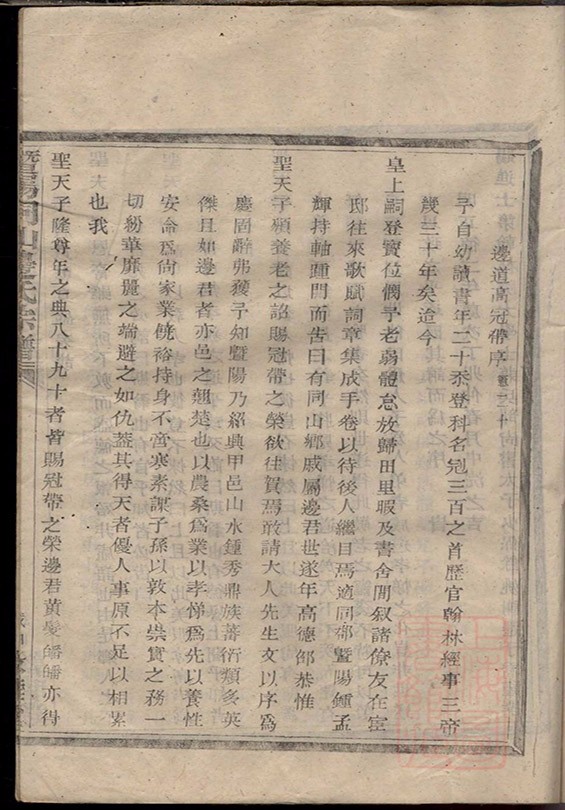 邊道高冠帶序
予自幼讀書年二十忝登科名冠三百之首歷官翰林經事三帝
幾三十年矣迨今
皇上嗣登寶位憫予老弱體怠放歸田里暇及書舍閒叙諸僚友在宦
邸往來歌賦詞章集成手卷以待後人繼目焉適同邵暨陽鍾孟
輝持軸踵門而告曰有同山鄉戚屬邊君世遂年高德邵恭惟
聖天子頒養老之詔賜冠帶之榮欲往賀焉敢請大人先生文以序為
慶固辭弗獲予知暨陽乃紹興甲邑山水鍾秀鼎族蕃衍類多英
傑且如邊君者亦邑之翹楚也以農桑為業以孝悌為先以養性
安淪為尚家業饒裕持身不啻寒素課子孫以敦本崇實之務一
切紛華靡麗之端避之如仇蓋其得天者優人事原不足以相累
也我
聖天子隆尊年之典八十九十者皆賜冠帶之榮邊君黃髮皤皤亦得
暨陽同山邊氏宗譜